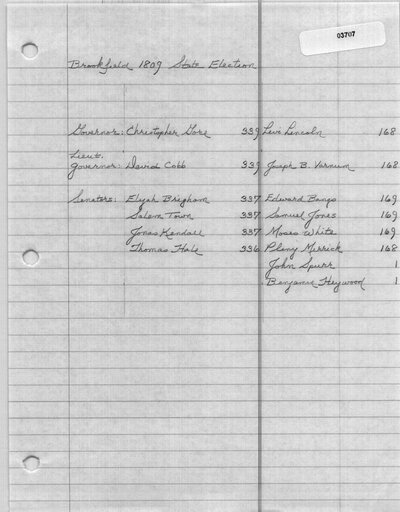 03707
Brookfield 1809 State Election
Governor: Christopher Gore 339 Levi Lincoln 168
Lieut.
Governor: David Cobb 339 Joseph B. Varnum 168
Senators: Elijah Brigham 337 Edward Bangs 169
Salem Town 337 Samuel Jones 169
Jonas Kendall 337 Moses White 169
Thomas Hale 336 Pliny Merrick 168
John Spurr 1
Benjamin Heywood 1